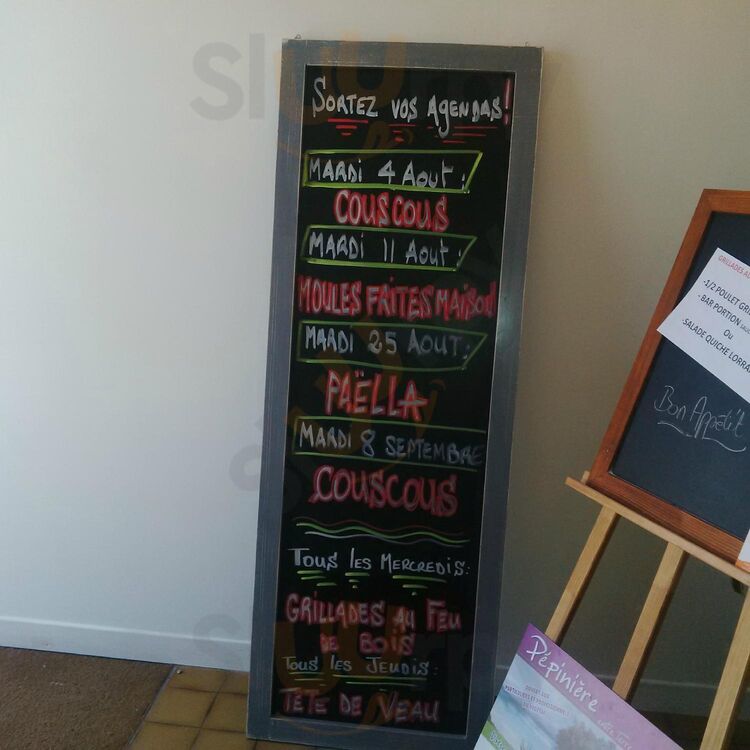 SORTEZ VOS AGENDAS!
MARDI 4 AOUT:
COUSCOUS
MARDI 11 AOUT:
MOULES FRITES MAISON
MARDI 25 AOUT:
PAËLLA
MARDI 8 SEPTEMBRE
COUSCOUS
TOUS LES MERCREDIS:
GRILLADES AU FEU
DE BOIS
TOUS LES JEUDIS:
TETE DE VEAU
GRILLADES AU
-1/2 POULET GRI
-BAR PORTION
OU
SALADE QUICHE LORRA
Bon Appetit
Pépinière